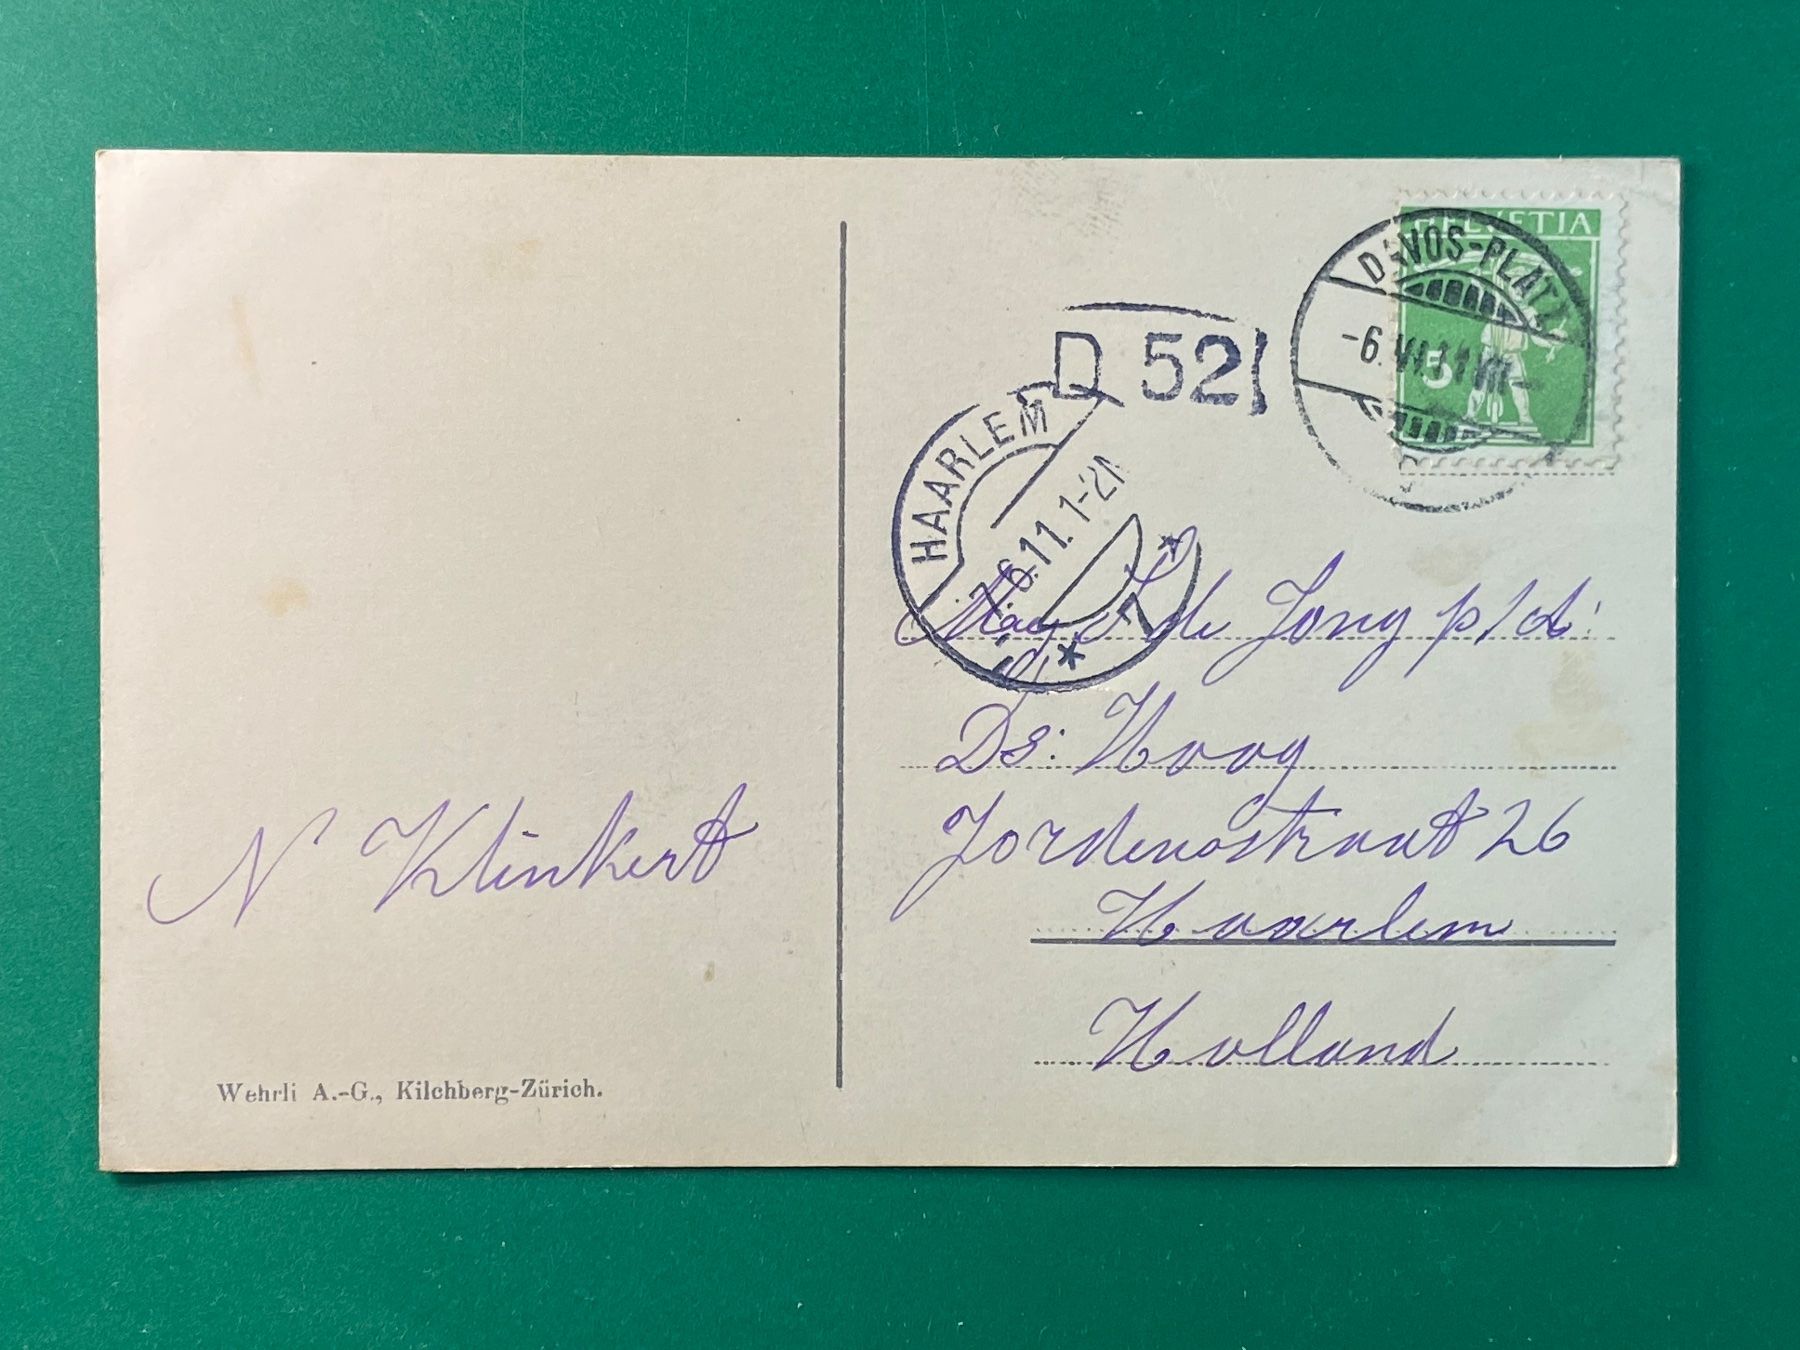 HELVETIA
5
DAVOS-PLATZ
-6.VI.11.VIII-
D 52
HAARLEM
7.6.11.1-2N
7
de Jong p/d:
Ds: Hoog
Jordensstraat 26
Haarlem
Holland
N Klinkert
Wehrli A.-G., Kilchberg-Zürich.